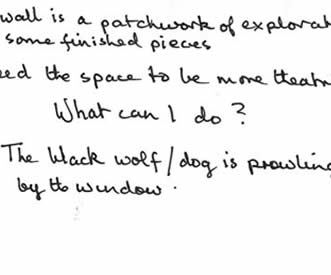 wall is a patchwork of explorat
some finished pieces
eed the space to be more theatr
What can I do?
The black wolf/dog is prowling
by the window.